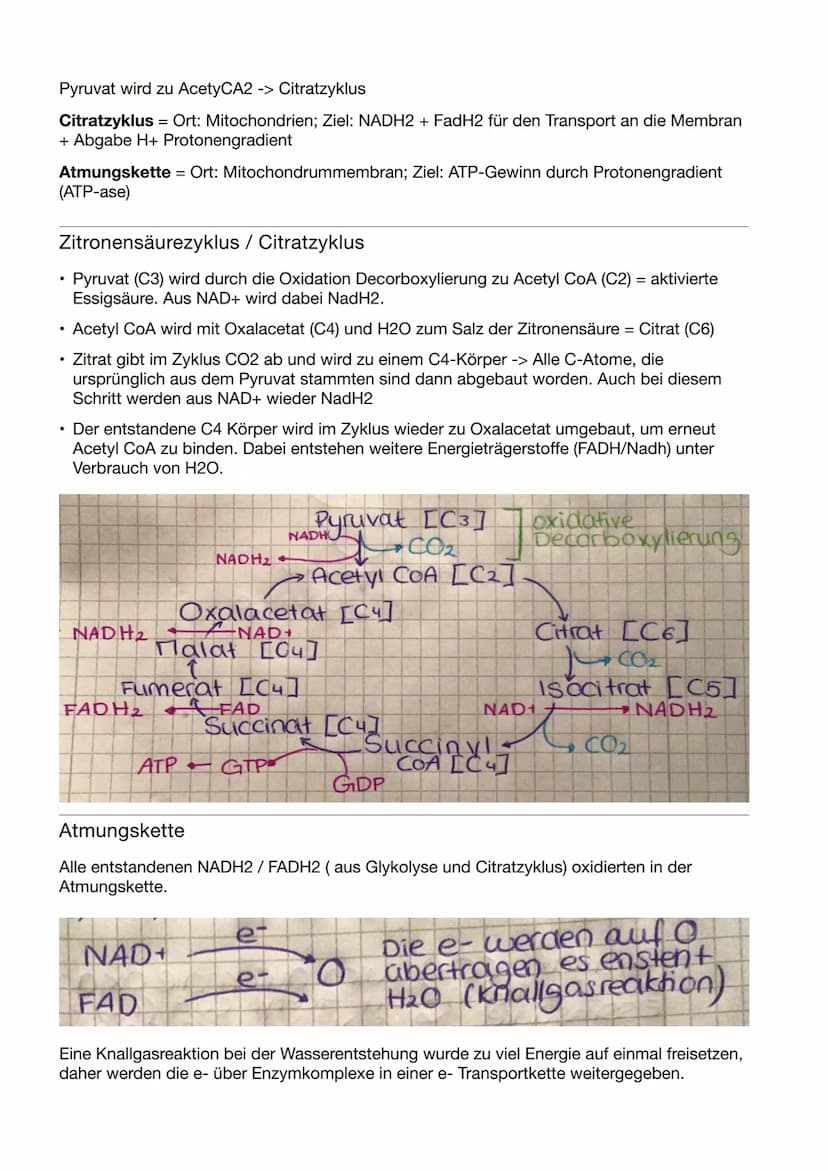 Pyruvat wird zu AcetyCA2 -> Citratzyklus
Citratzyklus = Ort: Mitochondrien; Ziel: NADH2 + FadH2 für den Transport an die Membran
+ Abgabe H+ Protonengradient
Atmungskette = Ort: Mitochondrummembran; Ziel: ATP-Gewinn durch Protonengradient
(ATP-ase)
Zitronensäurezyklus / Citratzyklus
• Pyruvat (C3) wird durch die Oxidation Decorboxylierung zu Acetyl CoA (C2) = aktivierte
Essigsäure. Aus NAD+ wird dabei NadH2.
• Acetyl CoA wird mit Oxalacetat (C4) und H2O zum Salz der Zitronensäure = Citrat (C6)
• Zitrat gibt im Zyklus CO2 ab und wird zu einem C4-Körper -> Alle C-Atome, die
ursprünglich aus dem Pyruvat stammten sind dann abgebaut worden. Auch bei diesem
Schritt werden aus NAD+ wieder NadH2
• Der entstandene C4 Körper wird im Zyklus wieder zu Oxalacetat umgebaut, um erneut
Acetyl CoA zu binden. Dabei entstehen weitere Energieträgerstoffe (FADH/Nadh) unter
Verbrauch von H2O.
Pyruvat [C3] oxidative
NADH CO2 Decorboxylierung
NADH2
Acetyl CoA [C2]
Oxalacetat [C4]
NADH2 NAD+ Citrat [C6]
Malat [C4] CO2
Fumerat [C4] Isocitrat [C5]
FADH2 FAD NAD+ NADH2
Succinat [C4]
Succinyl- CO2
ATP GTP CoA [C4]
GDP
Atmungskette
Alle entstandenen NADH2 / FADH2 ( aus Glykolyse und Citratzyklus) oxidierten in der
Atmungskette.
NAD+ e- Die e- werden auf O
FAD e- O übertragen es enstent
H2O (Knallgasreaktion)
Eine Knallgasreaktion bei der Wasserentstehung wurde zu viel Energie auf einmal freisetzen,
daher werden die e- über Enzymkomplexe in einer e- Transportkette weitergegeben.